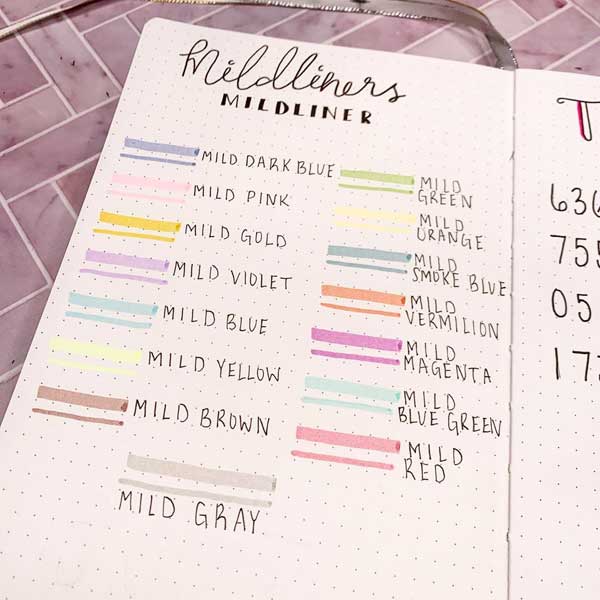 Mildliners
MILDLINER
MILD DARK BLUE
MILD PINK
MILD GOLD
MILD VIOLET
MILD BLUE
MILD YELLOW
MILD BROWN
MILD GRAY
MILD
GREEN
MILD
ORANGE
MILD
SMOKE BLUE
MILD
VERMILION
MILD
MAGENTA
MILD
BLUE GREEN
MILD
RED
T
636
755
05
17